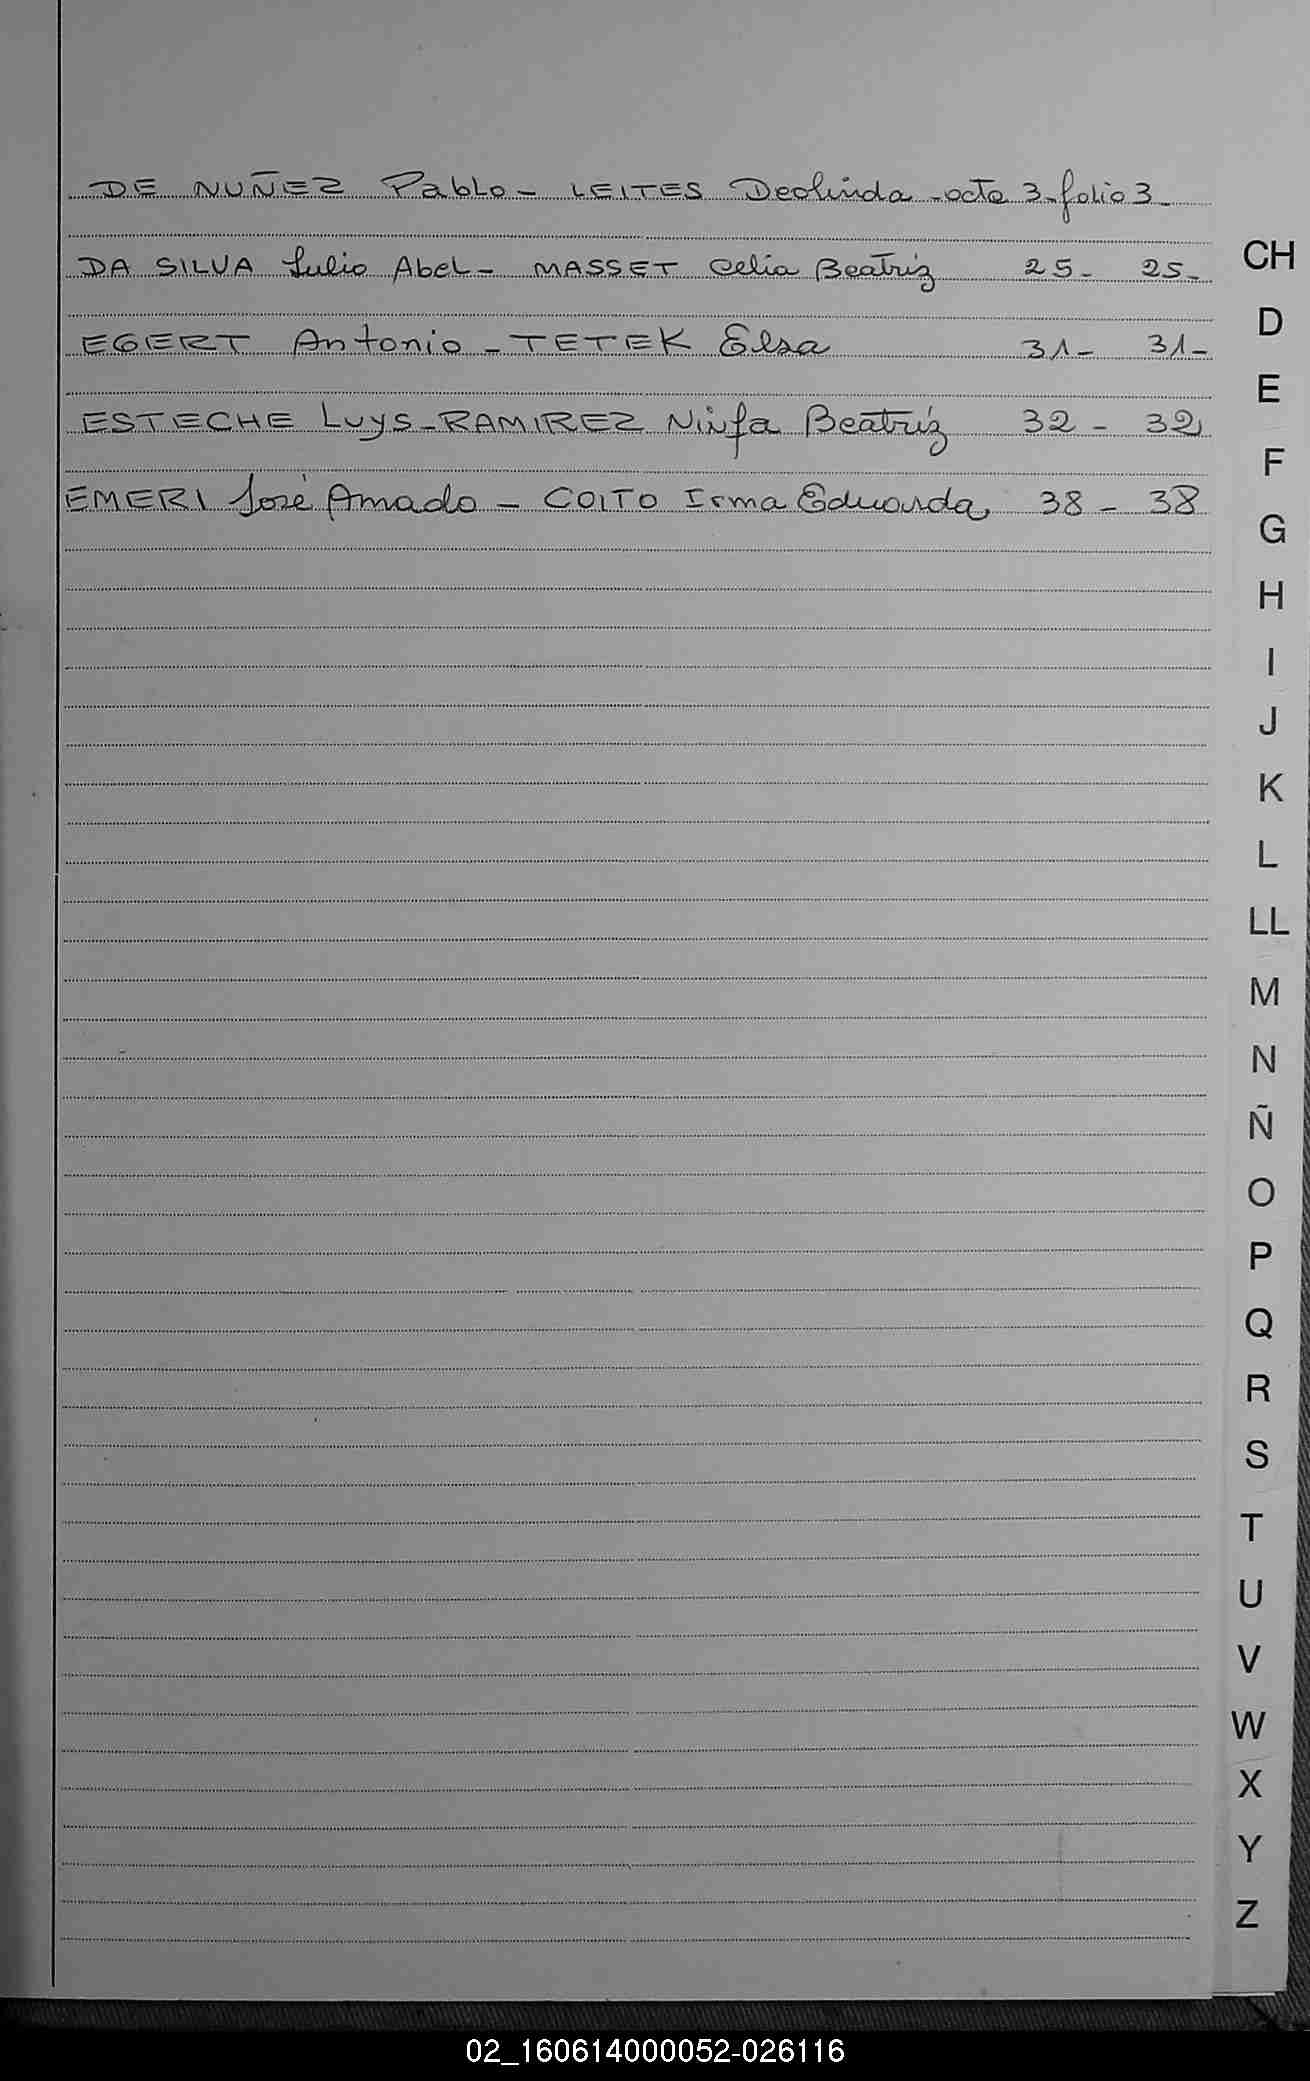 DE NUÑEZ Pablo - LEITES Deolinda - acta 3 - folio 3 -
DA SILVA Julio Abel - MASSET Celia Beatriz 25 - 25 -
EGERT Antonio - TETEK Elsa 31 - 31 -
ESTECHE Luys - RAMIREZ Ninfa Beatriz 32 - 32
EMERI José Amado - COITO Irma Eduarda, 38 - 38
CH
D
E
F
G
H
I
J
K
L
LL
M
N
Ñ
O
P
Q
R
S
T
U
V
W
X
Y
Z
02_160614000052-026116